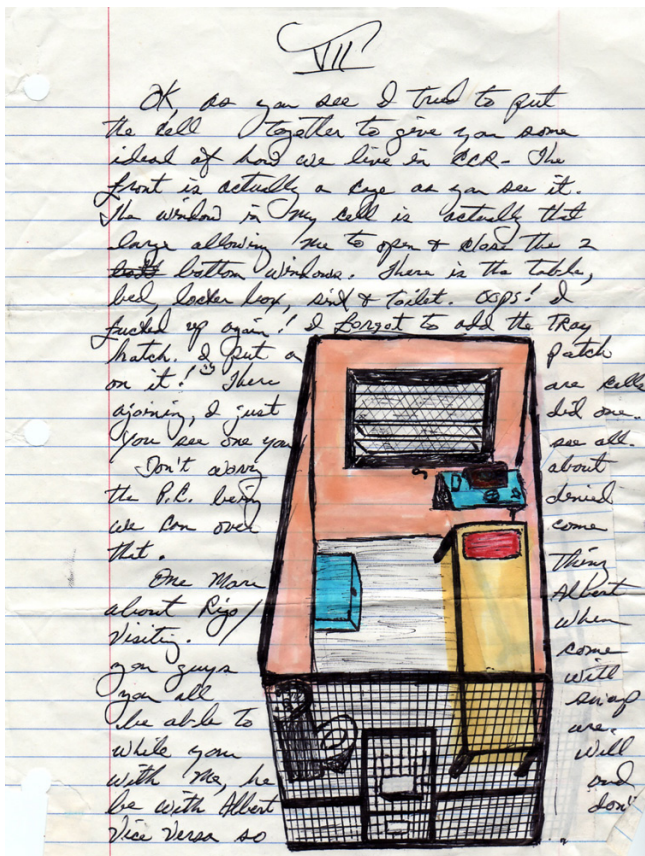 VII
OK, as you see I tried to put
the cell together to give you some
ideal of how we live in CCR - The
front is actually a cage as you see it.
The window in my cell is actually that
large allowing me to open & close the 2
bottom windows. There is the table,
bed, locker box, sink & toilet. OOPS! I
fucked up again! I forgot to add the TRAY
hatch. I put a patch
on it! There are cells
ajoining, I just did one.
You see one you see all.
Don't worry about
the P.C. being denied
we can over come
that.
One More Thing
about Rigo/ Albert
Visiting. When
you guys come
you all will
be able to swap
while you are.
with me, he will
be with Albert and
Vice Versa so don't